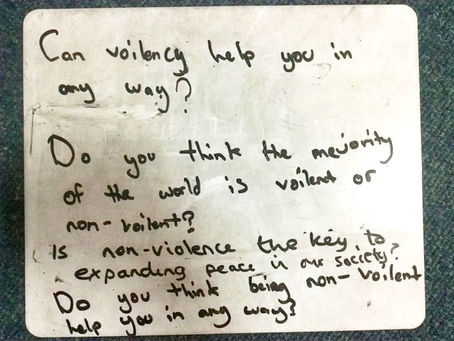 Can voilency help you in
any way?
Do you think the mejority
of the world is voilent or
non-voilent?
Is non-violence the key to
expanding peace in our society?
Do you think being non-voilent
help you in any way?